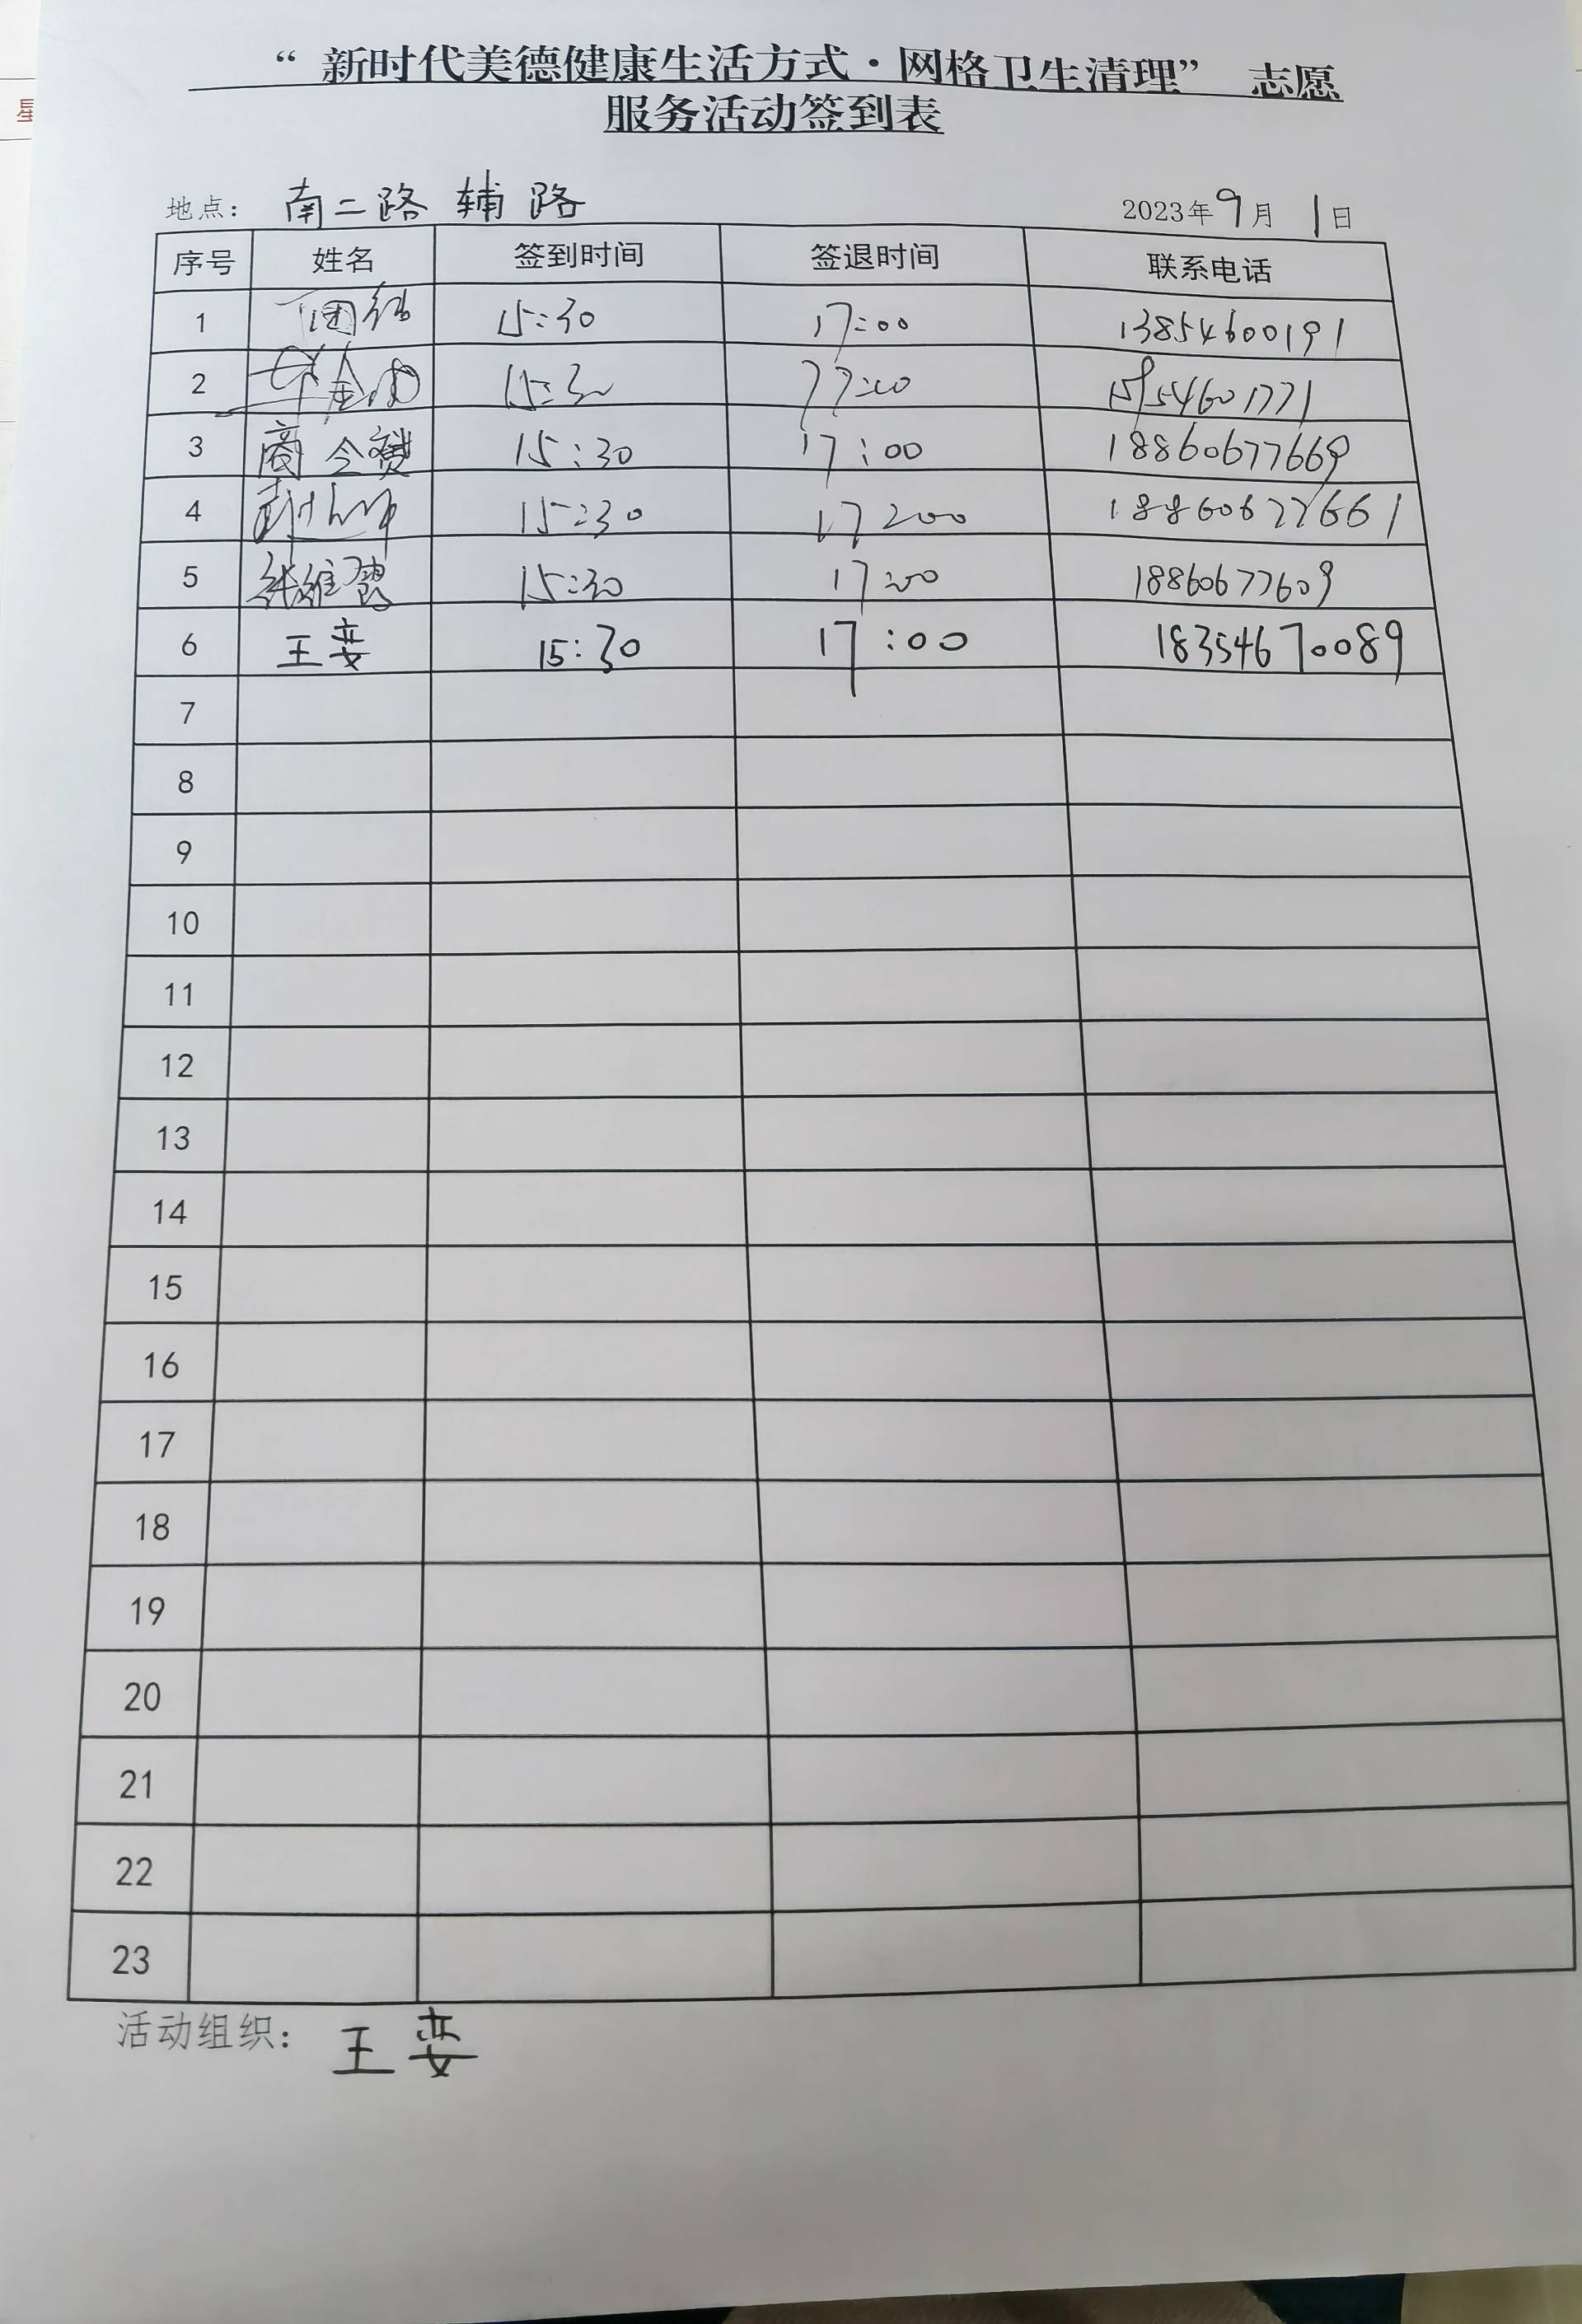 “新时代美德健康生活方式·网格卫生清理” 志愿
服务活动签到表
地点: 南二路 辅路 2023年9月1日
序号 姓名 签到时间 签退时间 联系电话
1 15:30 17:00 13854600191
2 15:30 17:00
3 商令赟 15:30 17:00 18860677669
4 15:30 17:00 18860677661
5 15:30 17:00 18860677609
6 王娈 15:30 17:00 18354670089
7
8
9
10
11
12
13
14
15
16
17
18
19
20
21
22
23
活动组织: 王娈